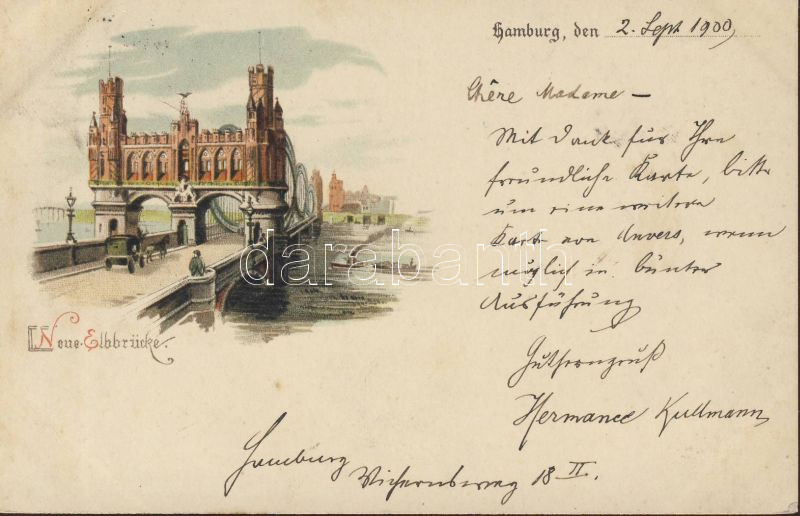 Hamburg, den 2. Sept 1900
Chère Madame –
Mit Dank für Ihre
freundliche Karte, bitte
um eine weitere
Karte von Anvers, wenn
möglich in bunter
Ausführung
Hermance Kullmann
Neue Elbbrücke.
Hamburg
Wichernsweg 18 II.
darabanth